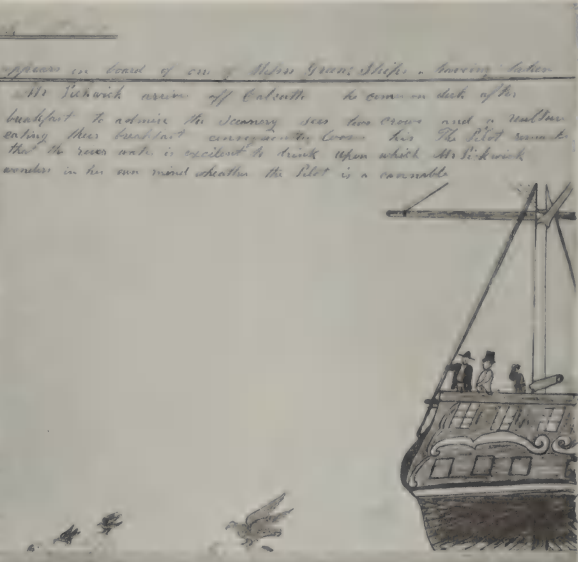 appears on board of one of Messrs Green's Ships. having taken
Mr Pickwick arrives off Calcutta he comes on deck after
breakfast to admire the Scearnery sees two crows and a vulture
eating their breakfast consequently looses his The Pilot remarks
that the river water is excelent to drink upon which Mr Pickwick
wonders in his own mind wheather the Pilot is a cannable